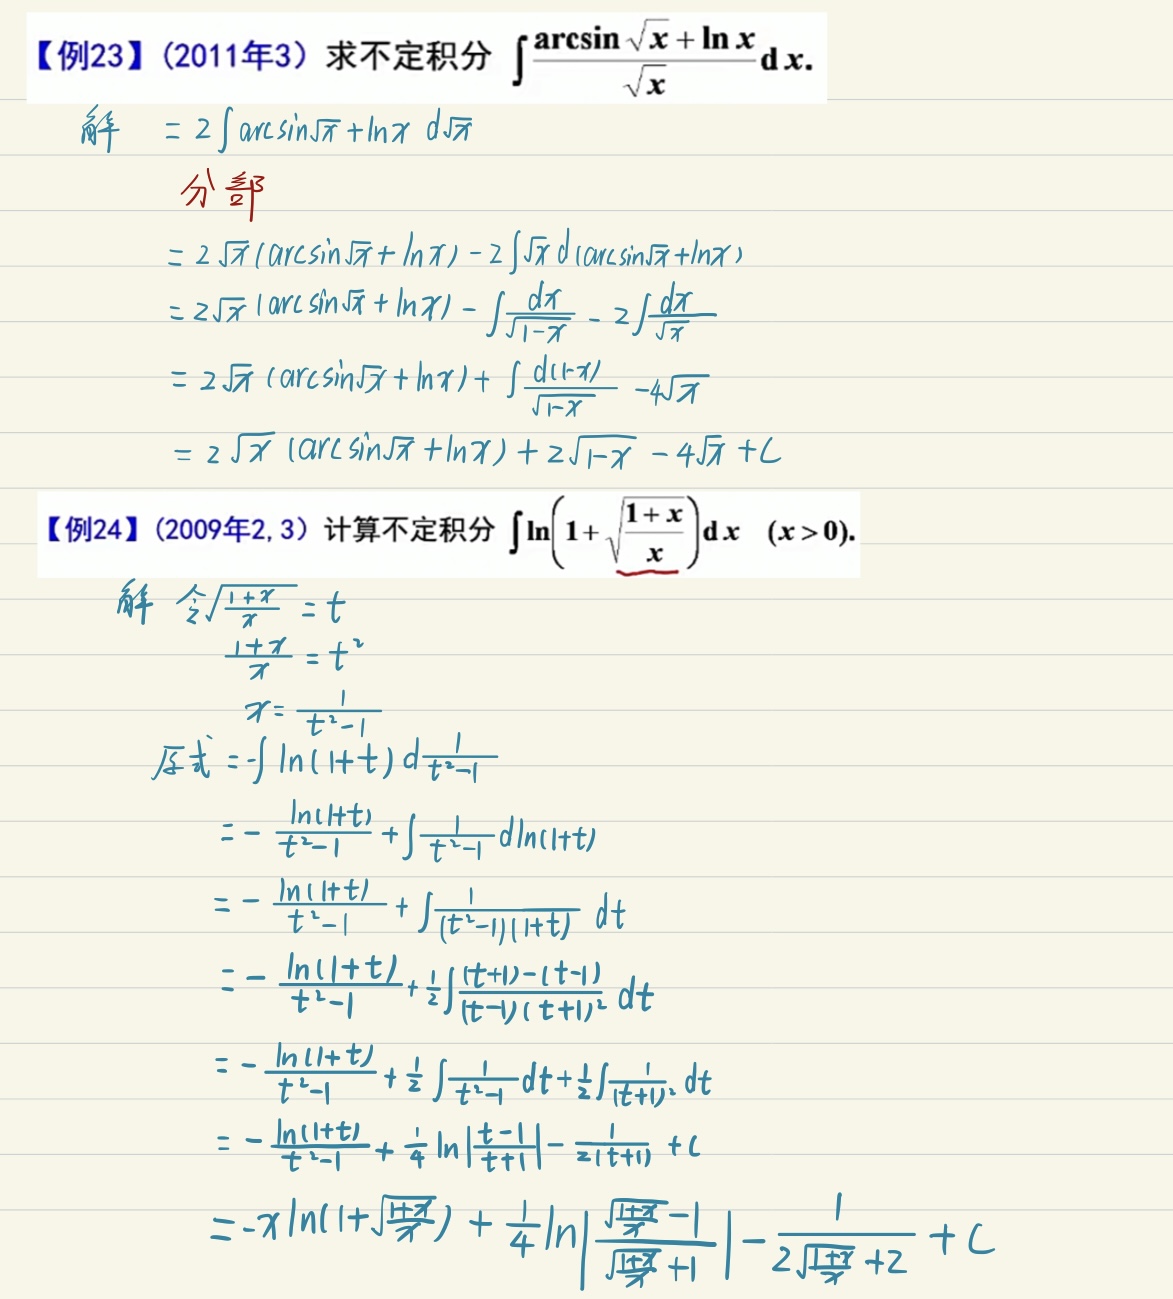 【例23】(2011年3) 求不定积分 ∫ (arcsin √x + ln x)/√x d x.
解 = 2∫arcsin√x + ln x d√x
分部
= 2√x(arcsin√x + ln x) - 2∫√x d(arcsin√x + ln x)
= 2√x(arcsin√x + ln x) - ∫ dx/√(1-x) - 2∫ dx/√x
= 2√x(arcsin√x + ln x) + ∫ d(1-x)/√(1-x) - 4√x
= 2√x(arcsin√x + ln x) + 2√(1-x) - 4√x + C
【例24】(2009年2, 3) 计算不定积分 ∫ ln(1 + √((1+x)/x)) d x (x > 0).
解 令√((1+x)/x) = t
(1+x)/x = t²
x = 1/(t²-1)
原式 = -∫ ln(1+t) d 1/(t²-1)
= - ln(1+t)/(t²-1) + ∫ 1/(t²-1) d ln(1+t)
= - ln(1+t)/(t²-1) + ∫ 1/((t²-1)(1+t)) dt
= - ln(1+t)/(t²-1) + 1/2 ∫ ((t+1)-(t-1))/((t-1)(t+1)²) dt
= - ln(1+t)/(t²-1) + 1/2 ∫ 1/(t²-1) dt + 1/2 ∫ 1/(t+1)² dt
= - ln(1+t)/(t²-1) + 1/4 ln|(t-1)/(t+1)| - 1/(2(t+1)) + C
= -x ln(1+√((1+x)/x)) + 1/4 ln|(√((1+x)/x) - 1)/(√((1+x)/x) + 1)| - 1/(2√((1+x)/x) + 2) + C